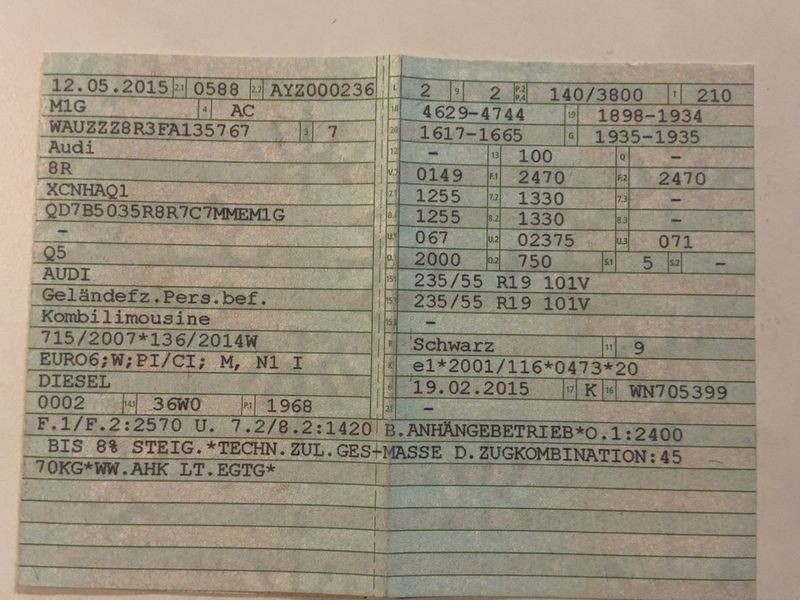 12.05.2015 2.1 0588 2.2 AYZ000236
M1G 4 AC
WAUZZZ8R3FA135767 3 7
Audi
8R
XCNHAQ1
QD7B5035R8R7C7MMEM1G
–
Q5
AUDI
Geländefz.Pers.bef.
Kombilimousine
715/2007*136/2014W
EURO6;W;PI/CI; M, N1 I
DIESEL
0002 14.1 36W0 P.1 1968
L 2 9 2 P.2 P.4 140/3800 T 210
18 4629-4744 19 1898-1934
20 1617-1665 G 1935-1935
12 – 13 100 Q –
V.7 0149 F.1 2470 F.2 2470
7.1 1255 7.2 1330 7.3 –
8.1 1255 8.2 1330 8.3 –
U.1 067 U.2 02375 U.3 071
O.1 2000 O.2 750 S.1 5 S.2 –
15.1 235/55 R19 101V
15.2 235/55 R19 101V
15.3 –
R Schwarz 11 9
K e1*2001/116*0473*20
6 19.02.2015 17 K 16 WN705399
21 –
F.1/F.2:2570 U. 7.2/8.2:1420 B.ANHÄNGEBETRIEB*O.1:2400
BIS 8% STEIG.*TECHN.ZUL.GES-MASSE D.ZUGKOMBINATION:45
70KG*WW.AHK LT.EGTG*